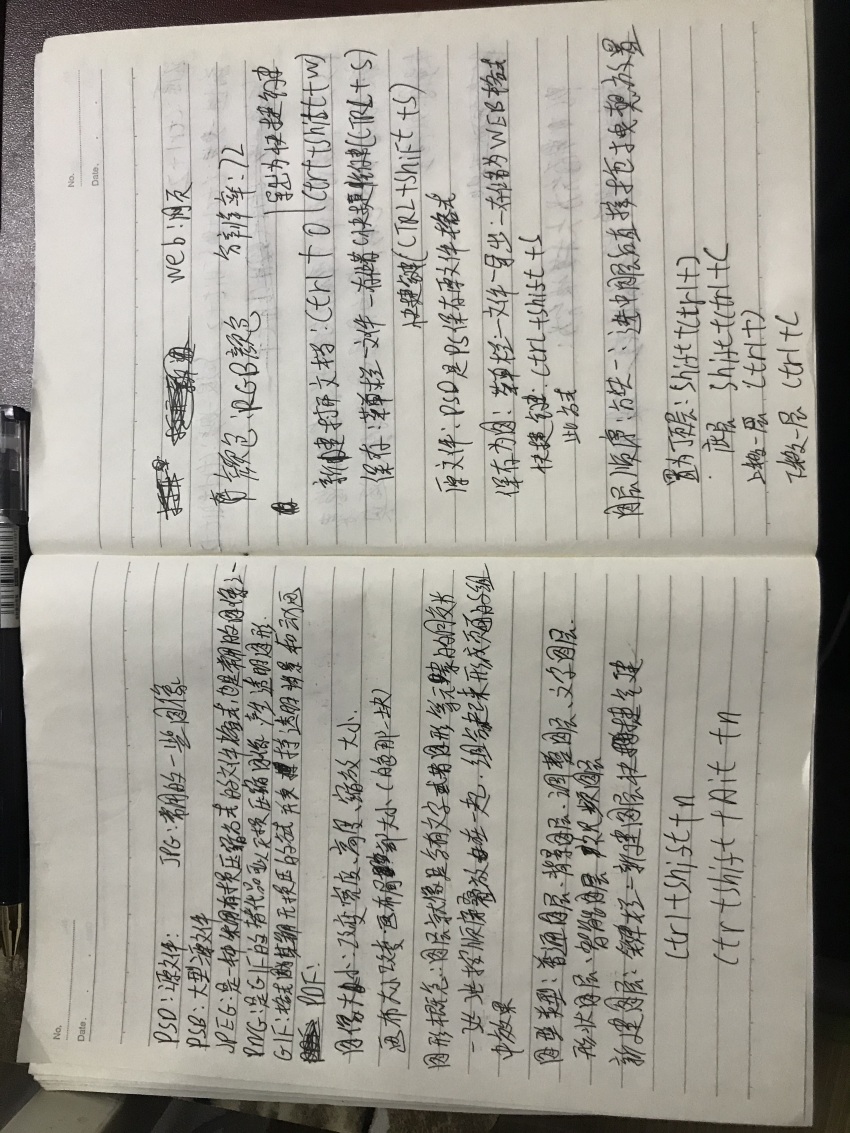 No.
Date.
PSD:源文件. JPG:常用的一些图像
PSB:大型源文件
JPEG:是一种采用有损压缩方式的文件格式,也是常用的图像之一
PNG:是GIF的替代品可以无损压缩图像 产生透明图形.
GIF:格式 无损压 支持透明背景和动画
PDF:
图像大小:改变宽度、高度、缩放大小.
画布大小:改变画布 大小(的那一块)
图形概念:图层就像是含有文字或者图形等元素的胶片
一张张按顺序叠放在一起.组合起来形成页面的
中效果
图 类型:普通图层、背景图层、调整图层、文字图层.
形状图层、智能图层、 视频图层
新建图层: 新建图层快捷键
Ctrl+Shift+n
Ctr+shift+Alt+n
No.
Date.
web:网页
颜色:RGB颜色 分辨率:72
导出为快捷键
新建打开文档:Ctrl+O (Ctrl+Shift+W)
保存:菜单栏—文件—存储(快捷键(CTRL+S)
快捷键(CTRL+Shift+S)
源文件:PSD是PS保存源文件格式
保存为图:菜单栏—文件—导出—存储为WEB格式
快捷键:Ctrl+Shift+S
此方式
图层顺序:方法一:选中图层后直接拖拽更换放置
置为顶层:Shift+Ctrl+]
底层 Shift+Ctrl+[
上移一层 Ctrl+]
下移一层 Ctrl+[